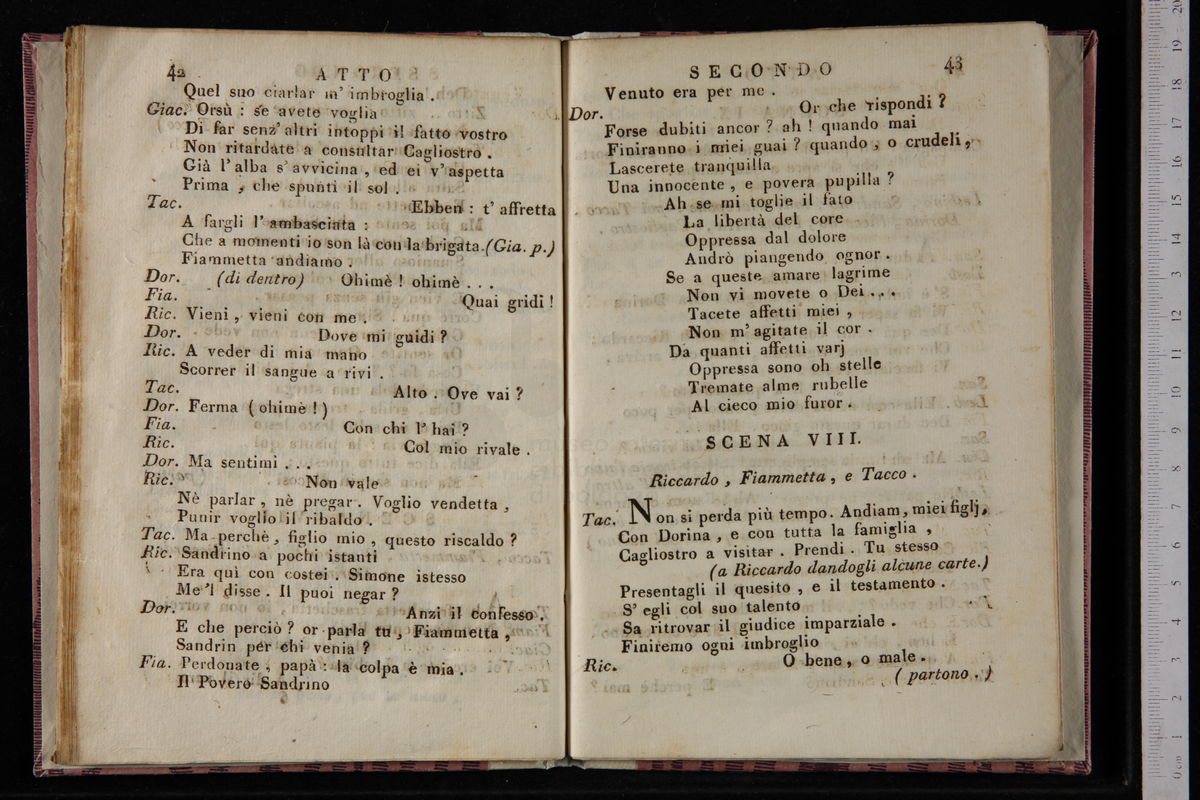 42 ATTO
Quel suo ciarlar m' imbroglia .
Giac. Orsù : se avete voglia
Di far senz' altri intoppi il fatto vostro
Non ritardate a consultar Cagliostro .
Già l' alba s' avvicina , ed ei v' aspetta
Prima , che spunti il sol .
Tac. Ebben : t' affretta
A fargli l' ambasciata :
Che a momenti io son là con la brigata.(Gia. p.)
Fiammetta andiamo .
Dor. (di dentro) Ohimè ! ohimè . . .
Fia. Quai gridi !
Ric. Vieni , vieni con me .
Dor. Dove mi guidi ?
Ric. A veder di mia mano
Scorrer il sangue a rivi .
Tac. Alto . Ove vai ?
Dor. Ferma ( ohimè ! )
Fia. Con chi l' hai ?
Ric. Col mio rivale .
Dor. Ma sentimi . . .
Ric. Non vale
Nè parlar , nè pregar . Voglio vendetta ,
Punir voglio il ribaldo .
Tac. Ma perchè , figlio mio , questo riscaldo ?
Ric. Sandrino a pochi istanti
Era quì con costei . Simone istesso
Me 'l disse . Il puoi negar ?
Dor. Anzi il confesso .
E che perciò ? or parla tu , Fiammetta ,
Sandrin per chi venia ?
Fia. Perdonate , papà : la colpa è mia .
Il Povero Sandrino
SECONDO 43
Venuto era per me .
Dor. Or che rispondi ?
Forse dubiti ancor ? ah ! quando mai
Finiranno i miei guai ? quando , o crudeli ,
Lascerete tranquilla
Una innocente , e povera pupilla ?
Ah se mi toglie il fato
La libertà del core
Oppressa dal dolore
Andrò piangendo ognor .
Se a queste amare lagrime
Non vi movete o Dei . . .
Tacete affetti miei ,
Non m' agitate il cor .
Da quanti affetti varj
Oppressa sono oh stelle
Tremate alme rubelle
Al cieco mio furor .
SCENA VIII.
Riccardo , Fiammetta , e Tacco .
Tac. Non si perda più tempo. Andiam, miei figlj,
Con Dorina , e con tutta la famiglia ,
Cagliostro a visitar . Prendi . Tu stesso
(a Riccardo dandogli alcune carte.)
Presentagli il quesito , e il testamento .
S' egli col suo talento
Sa ritrovar il giudice imparziale .
Finiremo ogni imbroglio
Ric. O bene , o male .
( partono . )
0 cm 1 2 3 4 5 6 7 8 9 10 11 12 13 14 15 16 17 18 19 20